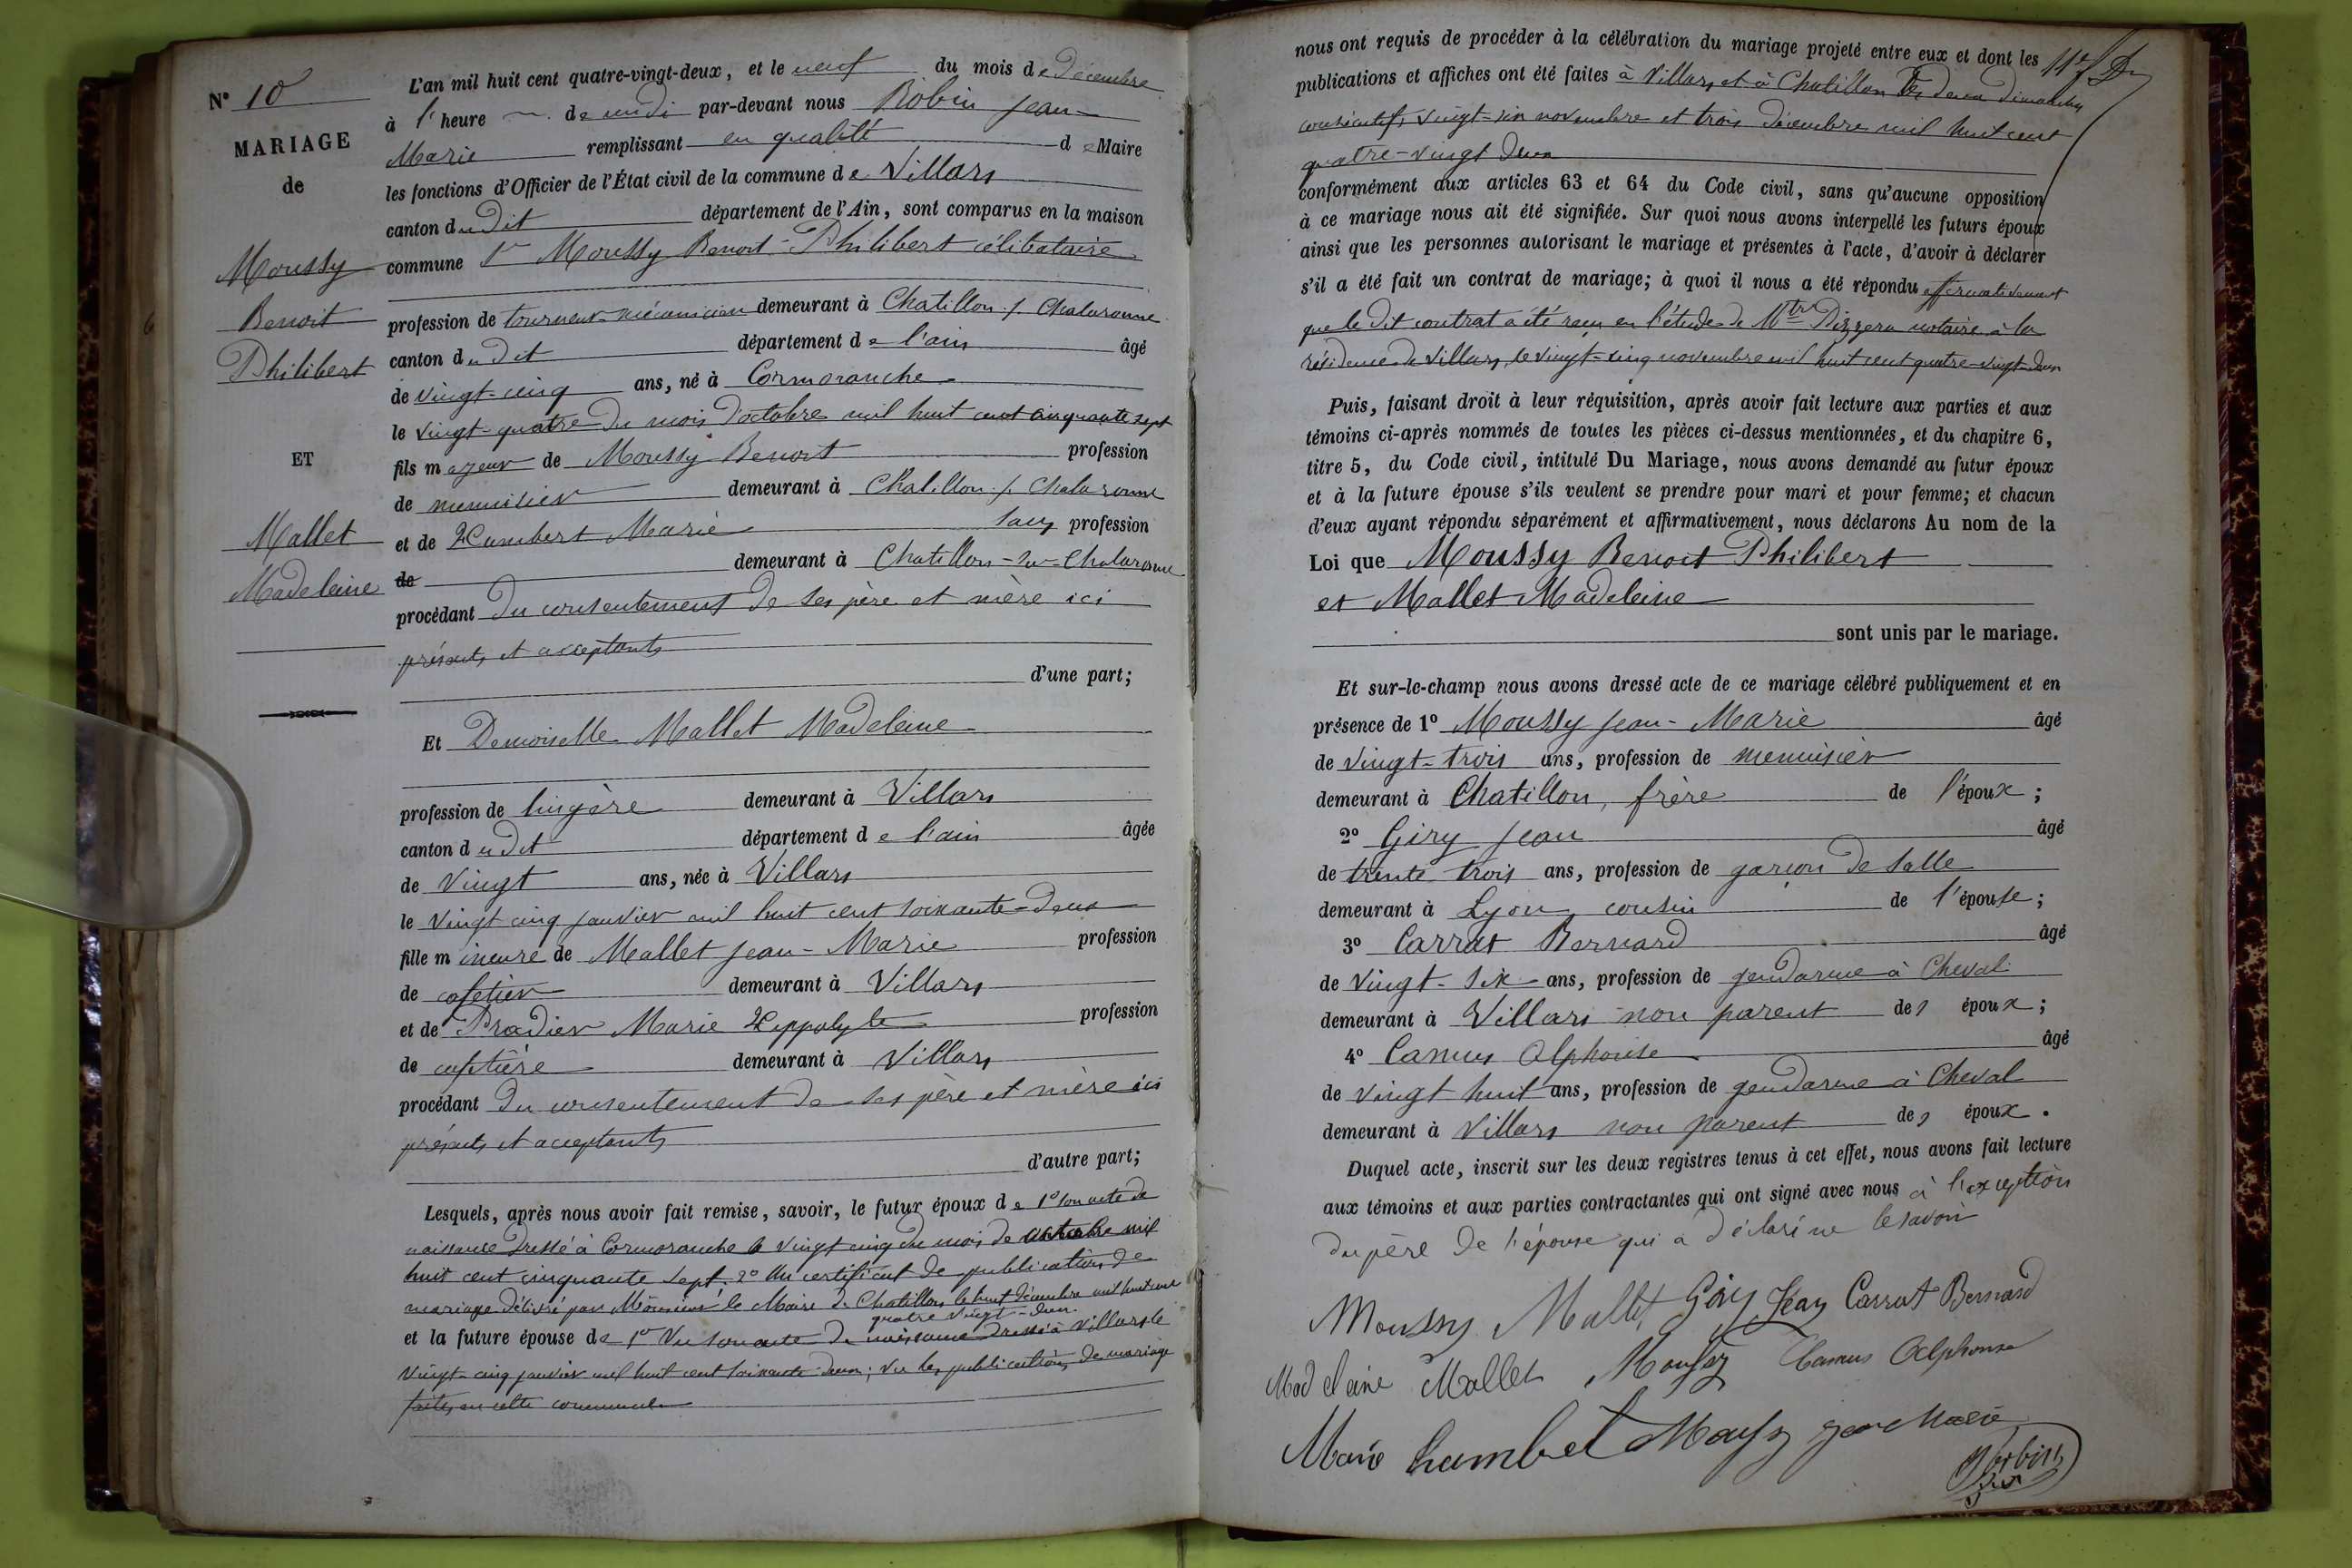 N° 10
MARIAGE
de
Moussy
Benoit
Philibert
ET
Mallet
Madeleine
L'an mil huit cent quatre-vingt-deux, et le neuf du mois de décembre
à l' heure de midi par-devant nous Robin Jean-
Marie remplissant en qualité de Maire
les fonctions d'Officier de l'État civil de la commune de Villars
canton dudit département de l'Ain, sont comparus en la maison
commune 1° Moussy Benoit-Philibert célibataire
profession de tourneur-mécanicien demeurant à Chatillon s/ Chalaronne
canton dudit département de l'ain âgé
de vingt-cinq ans, né à Cormoranche
le vingt-quatre du mois d'octobre mil huit cent cinquante sept
fils majeur de Moussy Benoit profession
de menuisier demeurant à Chatillon s/ Chalaronne
et de Humbert Marie sans profession
de demeurant à Chatillon-sur-Chalaronne
procédant du consentement de ses père et mère ici
présents et acceptants
d'une part;
Et Demoiselle Mallet Madeleine
profession de lingère demeurant à Villars
canton dudit département de l'ain âgée
de vingt ans, née à Villars
le vingt cinq janvier mil huit cent soixante-deux
fille mineure de Mallet Jean-Marie profession
de cafetier demeurant à Villars
et de Pradier Marie Hippolyte profession
de cafetière demeurant à Villars
procédant du consentement de ses père et mère ici
présents et acceptants
d'autre part;
Lesquels, après nous avoir fait remise, savoir, le futur époux de 1° son acte de
naissance dressé à Cormoranche le vingt cinq du mois de octobre mil
huit cent cinquante sept. 2° Un certificat de publication de
mariage délivré par Monsieur le Maire de Chatillon le huit décembre mil huit cent
quatre vingt-deux.
et la future épouse de 1° Vu son acte de naissance dressé à Villars le
vingt-cinq janvier mil huit cent soixante deux; Vu les publications de mariage
faites en cette commune
nous ont requis de procéder à la célébration du mariage projeté entre eux et dont les
publications et affiches ont été faites à Villars et à Chatillon les deux dimanches
consécutifs vingt-six novembre et trois décembre mil huit cent
quatre-vingt deux
conformément aux articles 63 et 64 du Code civil, sans qu'aucune opposition
à ce mariage nous ait été signifiée. Sur quoi nous avons interpellé les futurs époux
ainsi que les personnes autorisant le mariage et présentes à l'acte, d'avoir à déclarer
s'il a été fait un contrat de mariage; à quoi il nous a été répondu affirmativement
que le dit contrat a été reçu en l'étude de Mtre notaire à la
résidence de Villars, le vingt-cinq novembre mil huit cent quatre-vingt-deux
Puis, faisant droit à leur réquisition, après avoir fait lecture aux parties et aux
témoins ci-après nommés de toutes les pièces ci-dessus mentionnées, et du chapitre 6,
titre 5, du Code civil, intitulé Du Mariage, nous avons demandé au futur époux
et à la future épouse s'ils veulent se prendre pour mari et pour femme; et chacun
d'eux ayant répondu séparément et affirmativement, nous déclarons Au nom de la
Loi que Moussy Benoit Philibert
et Mallet Madeleine
sont unis par le mariage.
Et sur-le-champ nous avons dressé acte de ce mariage célébré publiquement et en
présence de 1° Moussy Jean-Marie âgé
de vingt-trois ans, profession de menuisier
demeurant à Chatillon, frère de l'époux;
2° Giry Jean âgé
de trente trois ans, profession de garçon de salle
demeurant à Lyon, cousin de l'épouse;
3° Carrat Bernard âgé
de vingt-six ans, profession de gendarme à cheval
demeurant à Villars non parent des époux;
4° Camus Alphonse âgé
de vingt huit ans, profession de gendarme à cheval
demeurant à Villars non parent des époux.
Duquel acte, inscrit sur les deux registres tenus à cet effet, nous avons fait lecture
aux témoins et aux parties contractantes qui ont signé avec nous à l'exception
du père de l'épouse qui a déclaré ne le savoir
Moussy Mallet Giry Jean Carrat Bernard
Madeleine Mallet Moussy Camus Alphonse
Marie humbet Moussy Jean Marie
Robin